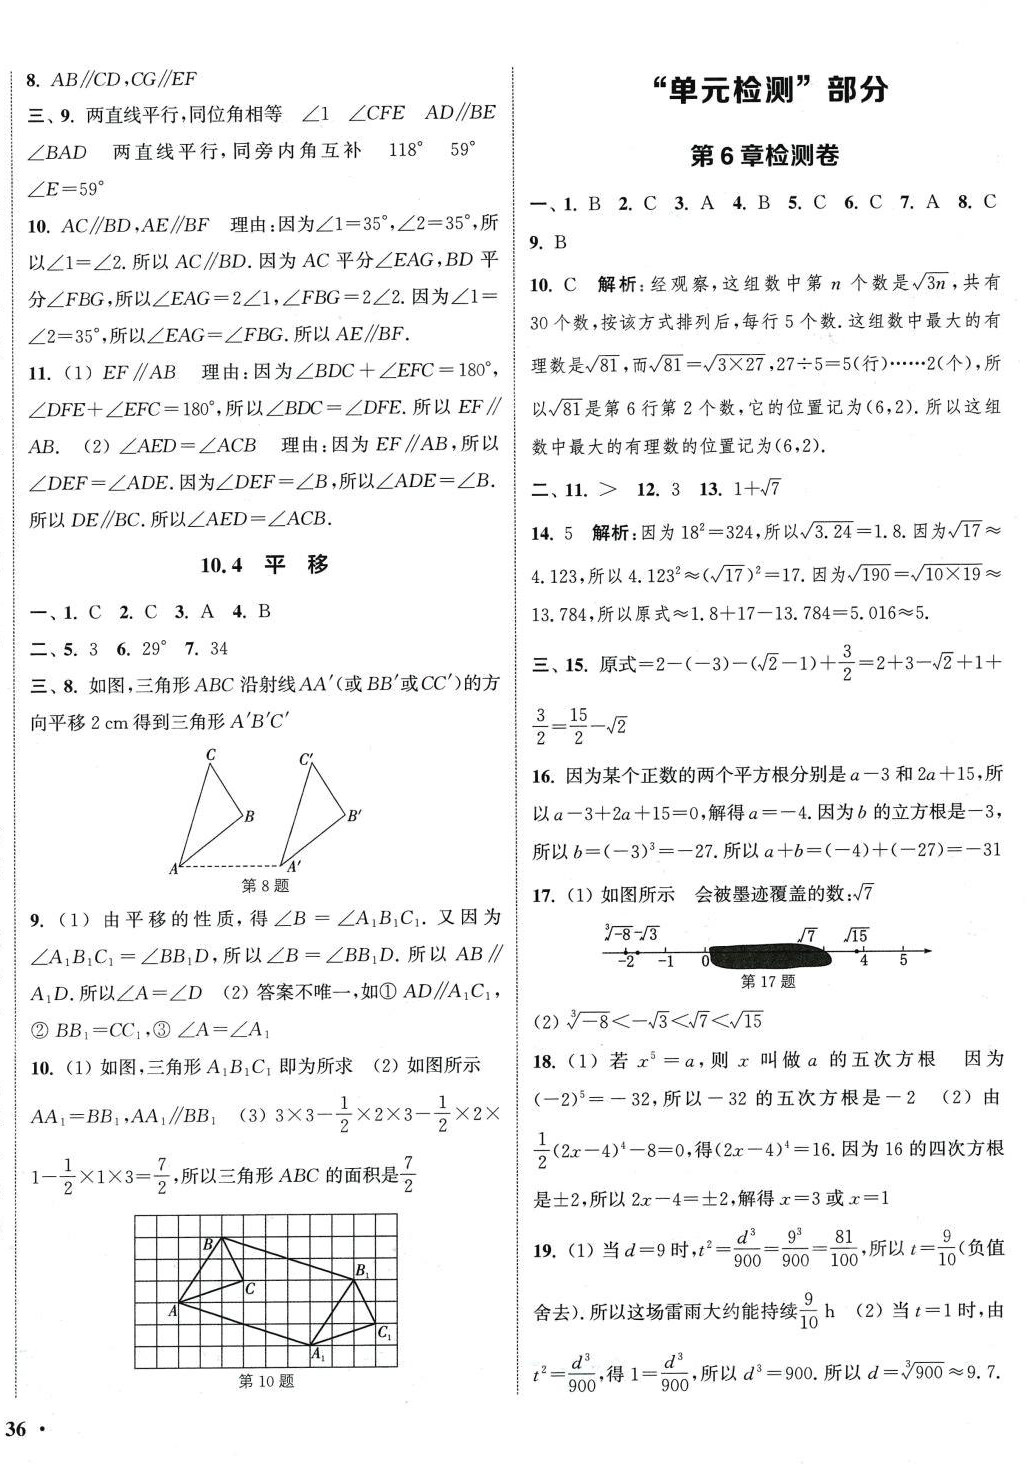 8. AB∥CD,CG∥EF
三、9. 两直线平行,同位角相等 ∠1 ∠CFE AD∥BE
∠BAD 两直线平行,同旁内角互补 118° 59°
∠E=59°
10. AC∥BD,AE∥BF 理由:因为∠1=35°,∠2=35°,所
以∠1=∠2.所以 AC∥BD.因为 AC 平分∠EAG,BD 平
分∠FBG,所以∠EAG=2∠1,∠FBG=2∠2.因为∠1=
∠2=35°,所以∠EAG=∠FBG.所以 AE∥BF.
11. (1) EF∥AB 理由:因为∠BDC+∠EFC=180°,
∠DFE+∠EFC=180°,所以∠BDC=∠DFE.所以 EF∥
AB. (2) ∠AED=∠ACB 理由:因为 EF∥AB,所以
∠DEF=∠ADE.因为∠DEF=∠B,所以∠ADE=∠B.
所以 DE∥BC.所以∠AED=∠ACB.
10.4 平 移
一、1. C 2. C 3. A 4. B
二、5. 3 6. 29° 7. 34
三、8. 如图,三角形 ABC 沿射线 AA′(或 BB′或 CC′)的方
向平移 2 cm 得到三角形 A′B′C′
C C′
B B′
A A′
第 8 题
9. (1) 由平移的性质,得∠B=∠A₁B₁C₁. 又因为
∠A₁B₁C₁=∠BB₁D,所以∠B=∠BB₁D.所以 AB∥
A₁D.所以∠A=∠D (2) 答案不唯一,如① AD∥A₁C₁,
② BB₁=CC₁,③ ∠A=∠A₁
10. (1) 如图,三角形 A₁B₁C₁ 即为所求 (2) 如图所示
AA₁=BB₁,AA₁∥BB₁ (3) 3×3-1/2×2×3-1/2×2×
1-1/2×1×3=7/2,所以三角形 ABC 的面积是7/2
B
B₁
C
A
C₁
A₁
第 10 题
36 ·
“单元检测”部分
第 6 章检测卷
一、1. B 2. C 3. A 4. B 5. C 6. C 7. A 8. C
9. B
10. C 解析:经观察,这组数中第 n 个数是√3n,共有
30 个数,按该方式排列后,每行 5 个数.这组数中最大的有
理数是√81,而√81=√3×27,27÷5=5(行)……2(个),所
以√81是第 6 行第 2 个数,它的位置记为(6,2).所以这组
数中最大的有理数的位置记为(6,2).
二、11. > 12. 3 13. 1+√7
14. 5 解析:因为 18²=324,所以√3.24=1.8.因为√17≈
4.123,所以 4.123²≈(√17)²=17.因为√190=√10×19≈
13.784,所以原式≈1.8+17-13.784=5.016≈5.
三、15. 原式=2-(-3)-(√2-1)+3/2=2+3-√2+1+
3/2=15/2-√2
16. 因为某个正数的两个平方根分别是 a-3 和 2a+15,所
以 a-3+2a+15=0,解得 a=-4.因为 b 的立方根是-3,
所以 b=(-3)³=-27.所以 a+b=(-4)+(-27)=-31
17. (1) 如图所示 会被墨迹覆盖的数:√7
∛-8 -√3 √7 √15
-2 -1 0 4 5
第 17 题
(2) ∛-8<-√3<√7<√15
18. (1) 若 x⁵=a,则 x 叫做 a 的五次方根 因为
(-2)⁵=-32,所以-32 的五次方根是-2 (2) 由
1/2(2x-4)⁴-8=0,得(2x-4)⁴=16.因为 16 的四次方根
是±2,所以 2x-4=±2,解得 x=3 或 x=1
19. (1) 当 d=9 时,t²=d³/900=9³/900=81/100,所以 t=9/10(负值
舍去).所以这场雷雨大约能持续9/10 h (2) 当 t=1 时,由
t²=d³/900,得 1=d³/900,所以 d³=900.所以 d=∛900≈9.7.